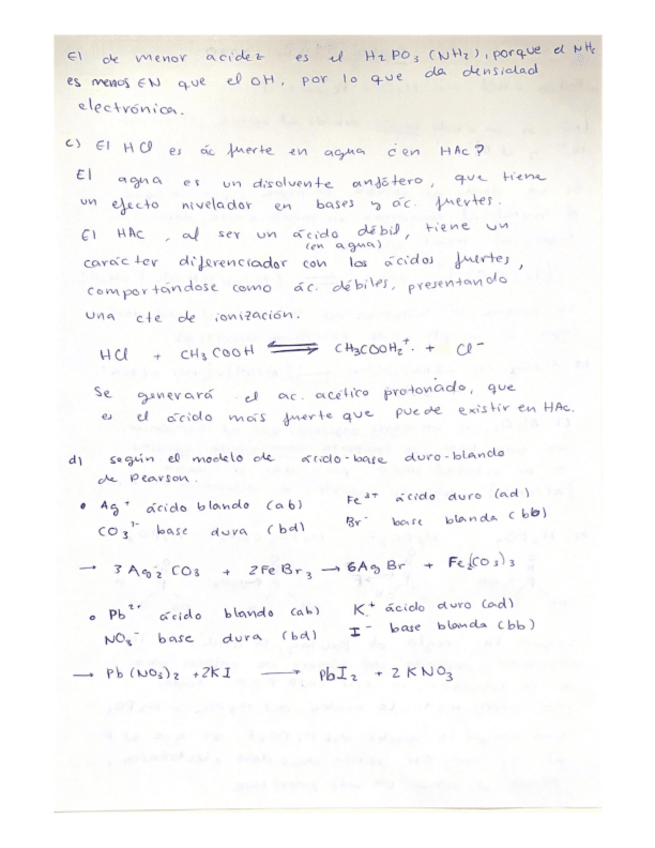 El de menor acidez es el H₂PO₃(NH₂), porque el NH₂
es menos EN que el OH, por lo que da densidad
electrónica.
c) El HCl es ác fuerte en agua ¿en HAc?
El agua es un disolvente anfótero, que tiene
un efecto nivelador en bases y ác. fuertes.
El HAc, al ser un ácido débil, tiene un
(en agua)
carácter diferenciador con los ácidos fuertes,
comportándose como ác. débiles, presentando
una cte de ionización.
HCl + CH₃COOH ⇌ CH₃COOH₂⁺ + Cl⁻
Se generará el ac. acético protonado, que
es el ácido más fuerte que puede existir en HAc.
d) según el modelo de ácido-base duro-blando
de Pearson.
• Ag⁺ ácido blando (ab) Fe³⁺ ácido duro (ad)
CO₃²⁻ base dura (bd) Br⁻ base blanda (bb)
→ 3 Ag₂CO₃ + 2FeBr₃ → 6AgBr + Fe₂(CO₃)₃
• Pb²⁺ ácido blando (ab) K⁺ ácido duro (ad)
NO₃⁻ base dura (bd) I⁻ base blanda (bb)
→ Pb(NO₃)₂ + 2KI → PbI₂ + 2KNO₃